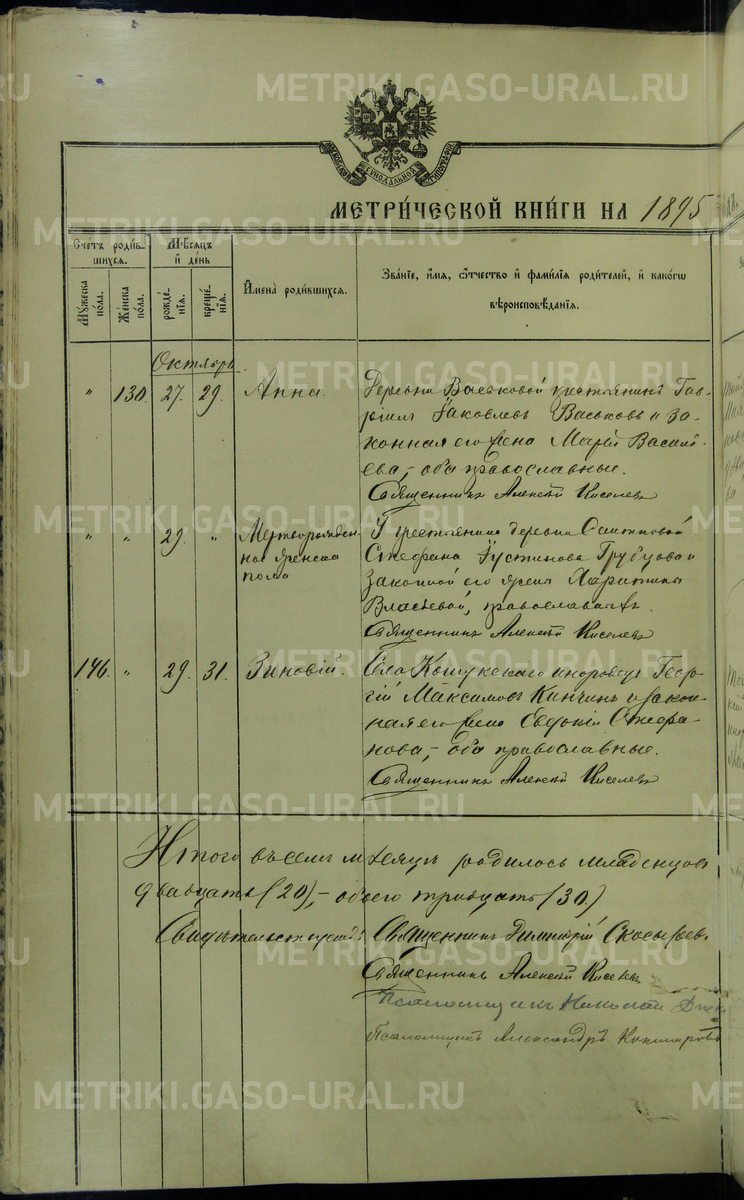 METRIKI.GASO-URAL.RU
МОСКОВСКОЙ СѴНОДАЛЬНОЙ ТИПОГРАФІИ
МЕТРИ́ЧЕСКОЙ КНИ́ГИ НА 1895
Сче́тъ роди́вшихся.
Мѣ́сяцъ и҆ де́нь
Мꙋ́жеска по́ла.
Же́нска по́ла.
рожде́нїя.
креще́нїя.
И҆мена̀ роди́вшихся.
Зва́нїе, и҆́мя, ѻ҆́тчество и҆ фами́лїя роди́телей, и҆ како́гѡ
вѣроисповѣ́данїя.
Октябрь
" 130. 27. 29. Анна. Деревни Васьковой крестьянинъ Гав-
ріилъ Іаковлевъ Васьковъ и за-
конная его жена Марія Василі-
ева, – оба православные.
Священникъ Алексій Киселевъ
" " 29. " Мертворожден- У крестьянина деревни
ная женска Стефана Іустинова Грубцова и
пола законной его жены Харитины
Власіевой, православныхъ.
Священникъ Алексій Киселевъ
146. " 29. 31. Зиновій. Села инородецъ Геор-
гій Максимовъ Кинчинъ и закон-
ная его жена Евдокія Стефа-
нова, – оба православные.
Священникъ Алексій Киселевъ
Итого въ семъ мѣсяцѣ родилось младенцовъ
двадцать (20), – обоего тридцать (30.)
Свидѣтельствуютъ: Священникъ Димитрій
Священникъ Алексій Киселевъ
Псаломщикъ Николай
Псаломщикъ Александръ